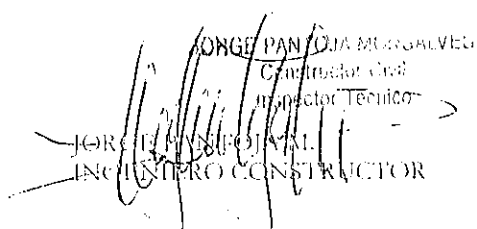 JORGE PANTOJA
Constructor Civil
Inspector Técnico
JORGE PANTOJA M.
INGENIERO CONSTRUCTOR